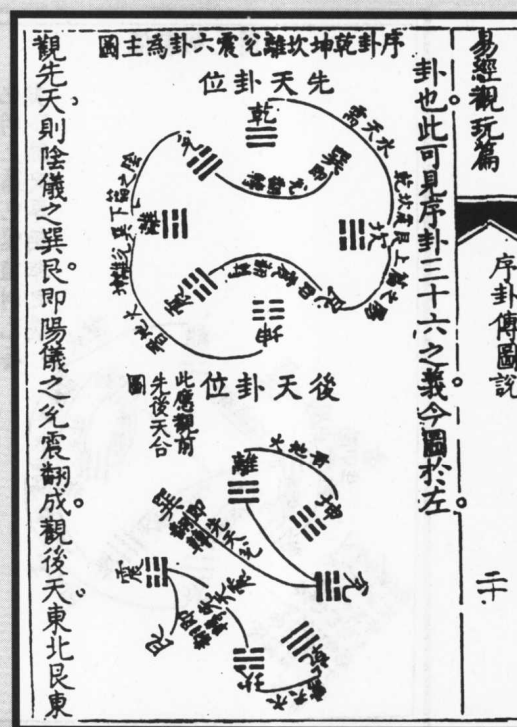 易經觀玩篇
序卦傳圖說
二十
卦也此可見序卦三十六之義今圖於左
序卦乾坤坎離兌震六卦為主圖
先天卦位
乾
兌
離
震
巽
坎
艮
坤
需天水
後天卦位
此應觀前
先後天合
圖
離
坤
兌
乾
坎
艮
震
巽
需天水
觀先天則陰儀之巽艮即陽儀之兌震翻成觀後天東北艮東